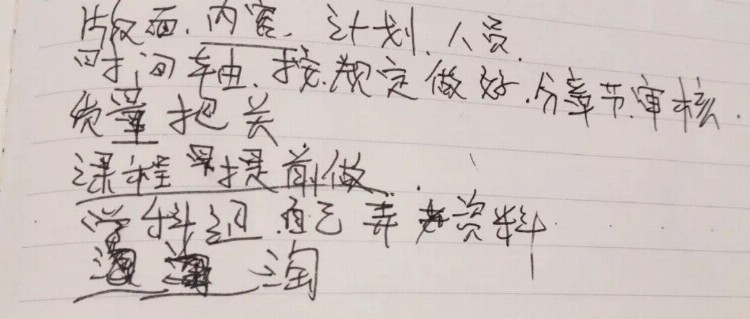 版面、内容、计划、人员、
时间轴、按规定做好、分章节、审核、
质量把关
课程提前做、
学科组自己弄资料
淘